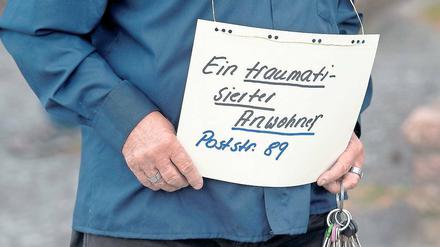 Ein traumati-
sierter
Anwohner
Poststr. 89